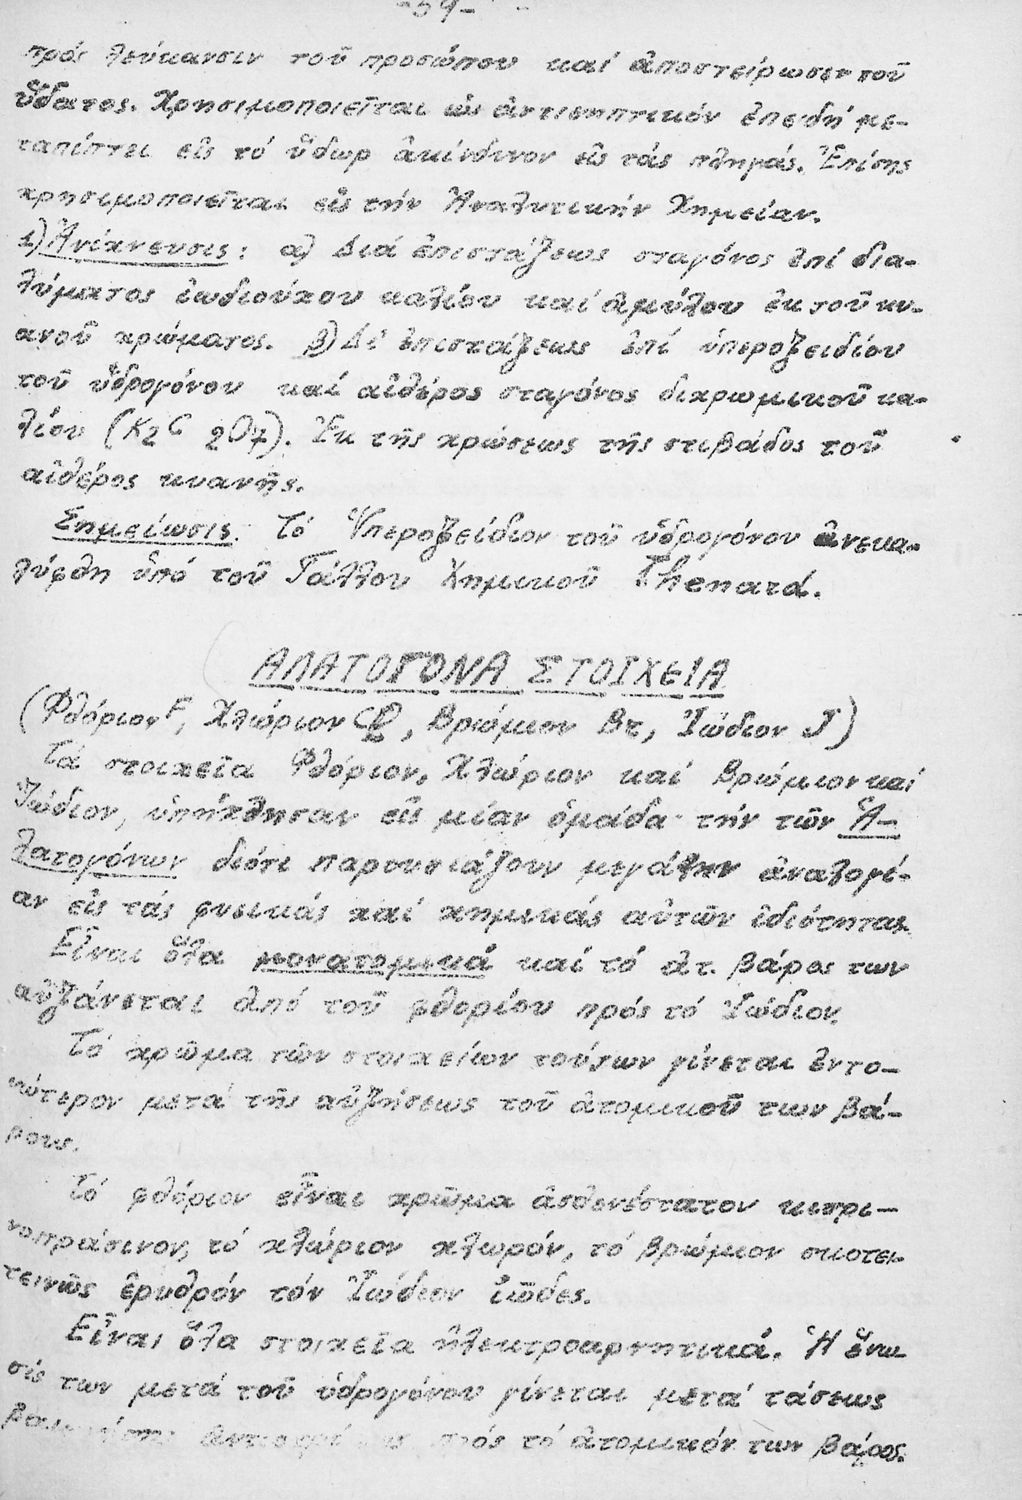 -59-
πρός λεύκανσιν τοῦ προσώπου καί ἀποστείρωσιν τοῦ
ὕδατος. Χρησιμοποιεῖται ὡς ἀντισηπτικόν ἐπειδή με-
ταπίπτει εἰς τό ὕδωρ ἀκίνδυνον εἰς τάς πληγάς. Ἐπίσης
χρησιμοποιεῖται εἰς τήν Ἀναλυτικήν Χημείαν.
1) Ἀνίχνευσις: α) Διά ἐπιστάξεως σταγόνος ἐπί δια-
λύματος ἰωδιούχου καλίου καί ἀμύλου ἐκ τοῦ κυ-
ανοῦ χρώματος. β) Δι' ἐπιστάξεως ἐπί ὑπεροξειδίου
τοῦ ὑδρογόνου καί αἰθέρος σταγόνος διχρωμικοῦ κα-
λίου (K2C 2O7). Ἐκ τῆς χρώσεως τῆς στιβάδος τοῦ
αἰθέρος κυανῆς.
Σημείωσις. Τό Ὑπεροξείδιον τοῦ ὑδρογόνου ἀνεκα-
λύφθη ὑπό τοῦ Γάλλου Χημικοῦ Thenard.
ΑΛΑΤΟΓΟΝΑ ΣΤΟΙΧΕΙΑ
(Φθόριον F, Χλώριον Cl, Βρώμιον Br, Ἰώδιον J)
Τά στοιχεῖα Φθόριον, Χλώριον καί Βρώμιον καί
Ἰώδιον, ὑπήχθησαν εἰς μίαν ὁμάδα τήν τῶν Ἁ-
λατογόνων διότι παρουσιάζουν μεγάλην ἀναλογί-
αν εἰς τάς φυσικάς καί χημικάς αὐτῶν ἰδιότητας.
Εἶναι ὅλα μονατομικά καί τό ἀτ. βάρος των
αὐξάνεται ἀπό τοῦ φθορίου πρός τό Ἰώδιον.
Τό χρῶμα τῶν στοιχείων τούτων γίνεται ἐντο-
νώτερον μετά τῆς αὐξήσεως τοῦ ἀτομικοῦ των βά-
ρους.
Τό φθόριον εἶναι χρῶμα ἀσθενέστατον κιτρι-
νοπράσινον, τό χλώριον χλωρόν, τό βρώμιον σκοτει-
τεινῶς ἐρυθρόν τόν Ἰώδιον ἰῶδες.
Εἶναι ὅλα στοιχεῖα ἠλεκτροαρνητικά. Ἡ ἕνω-
σίς των μετά τοῦ ὑδρογόνου γίνεται μετά τάσεως
πρός τό ἀτομικόν των βάρος.